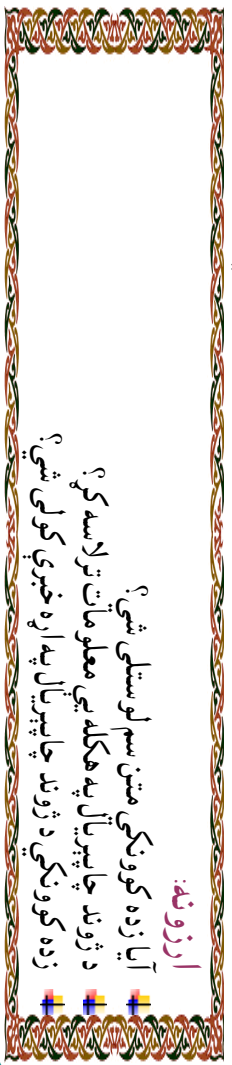 ارزونه:
آیا زده کوونکي متن سم لوستلی شي؟
د ژوند چاپیریال په هکله یې معلومات ترلاسه کړ؟
زده کوونکي د ژوند چاپیریال په اړه خبرې کولی شي؟